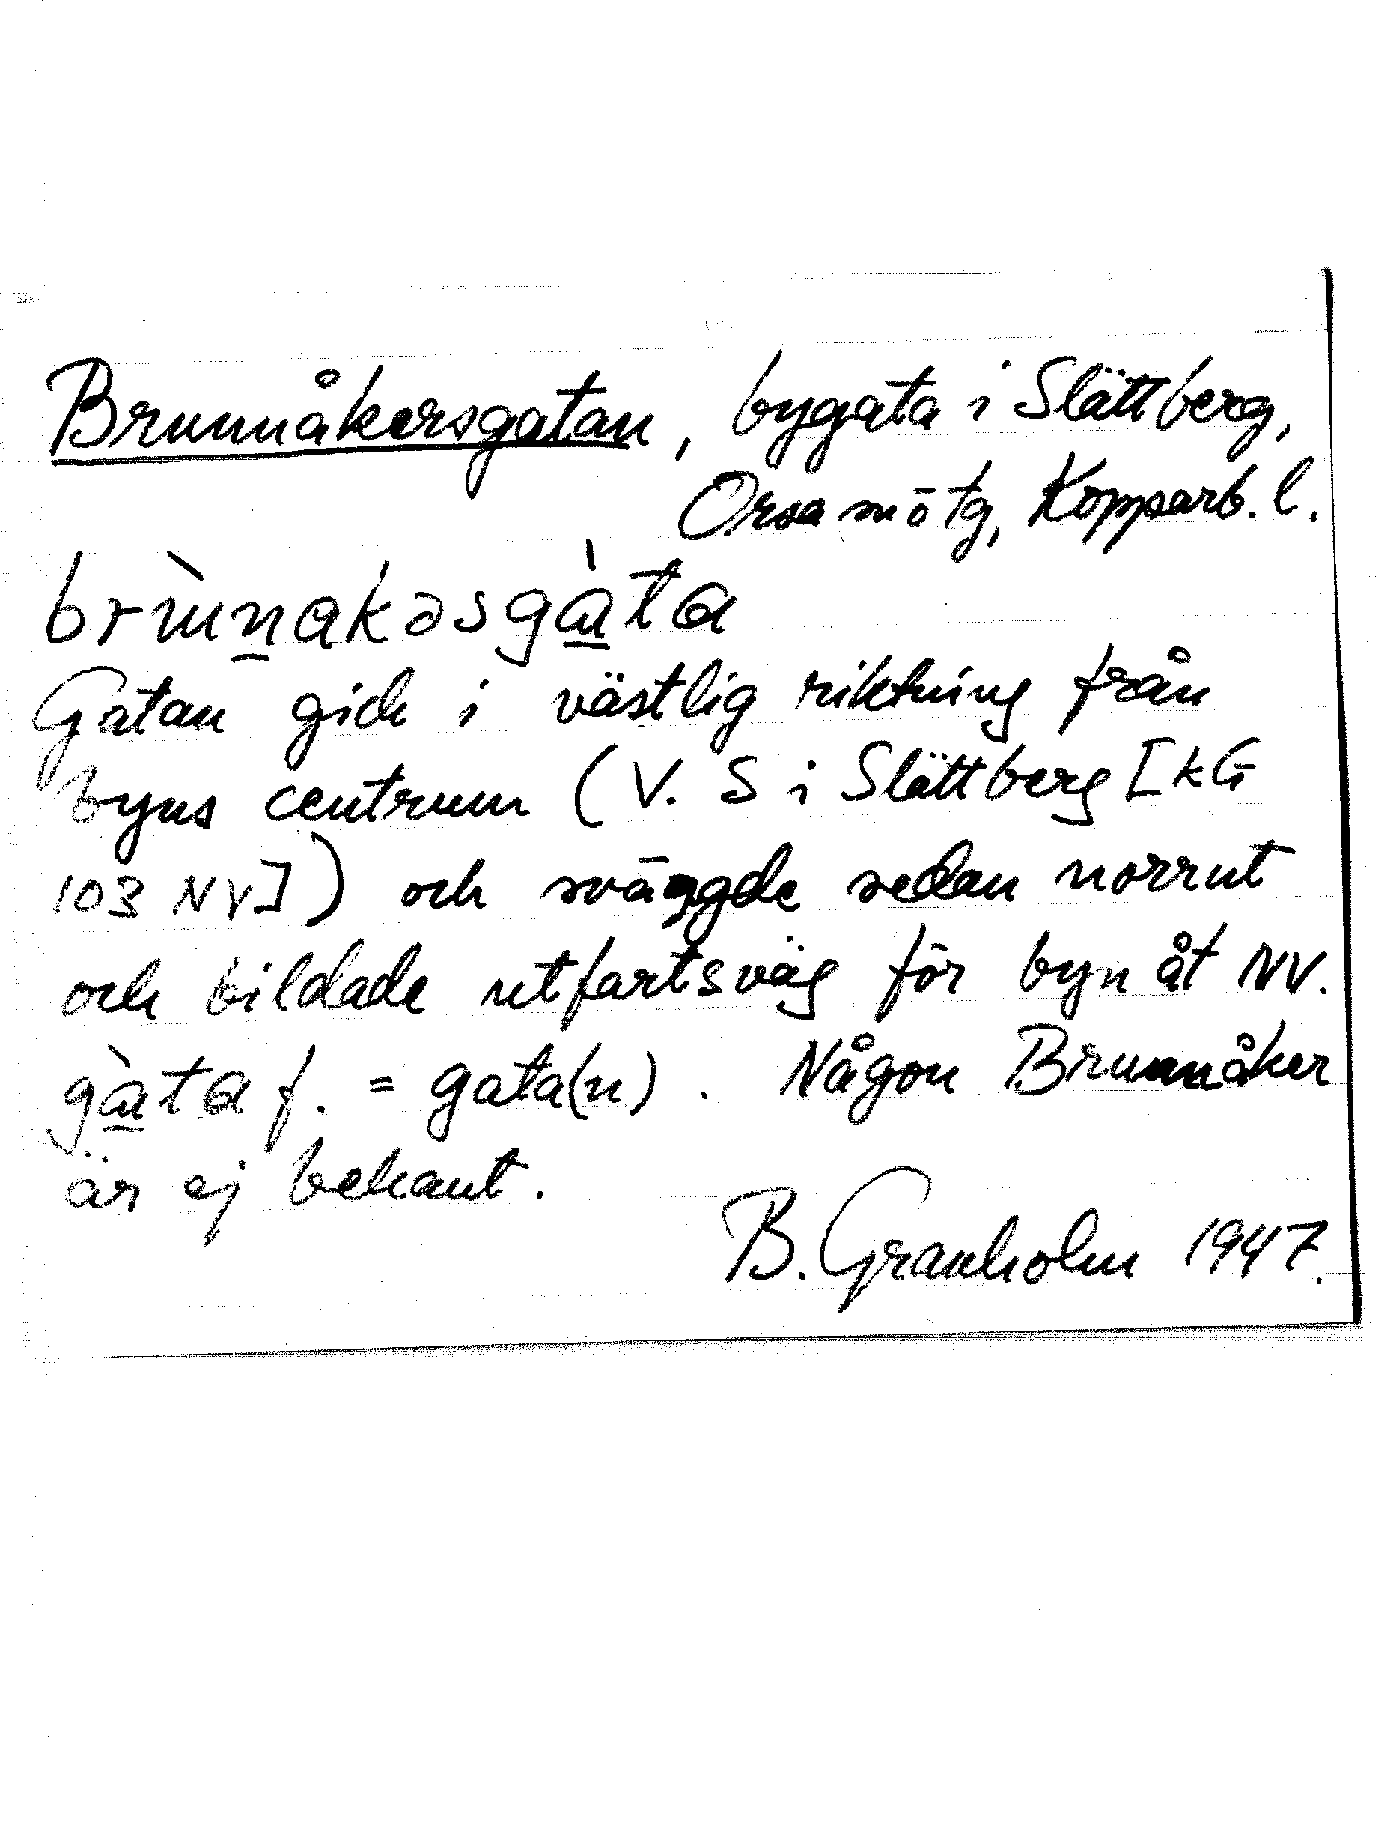 Brunnåkersgatan, bygata i Slättberg,
Orsa mōtg, Kopparb. l.
brùn̲akəsgà̲ta
Gatan gick i västlig riktning från
byns centrum (V. S i Slättberg [kG
103 NV]) och svāngde sedan norrut
och bildade utfartsväg för byn åt NV.
gà̲ta f. = gata(n). Någon Brunnåker
är ej bekant.
B. Granholm 1947.